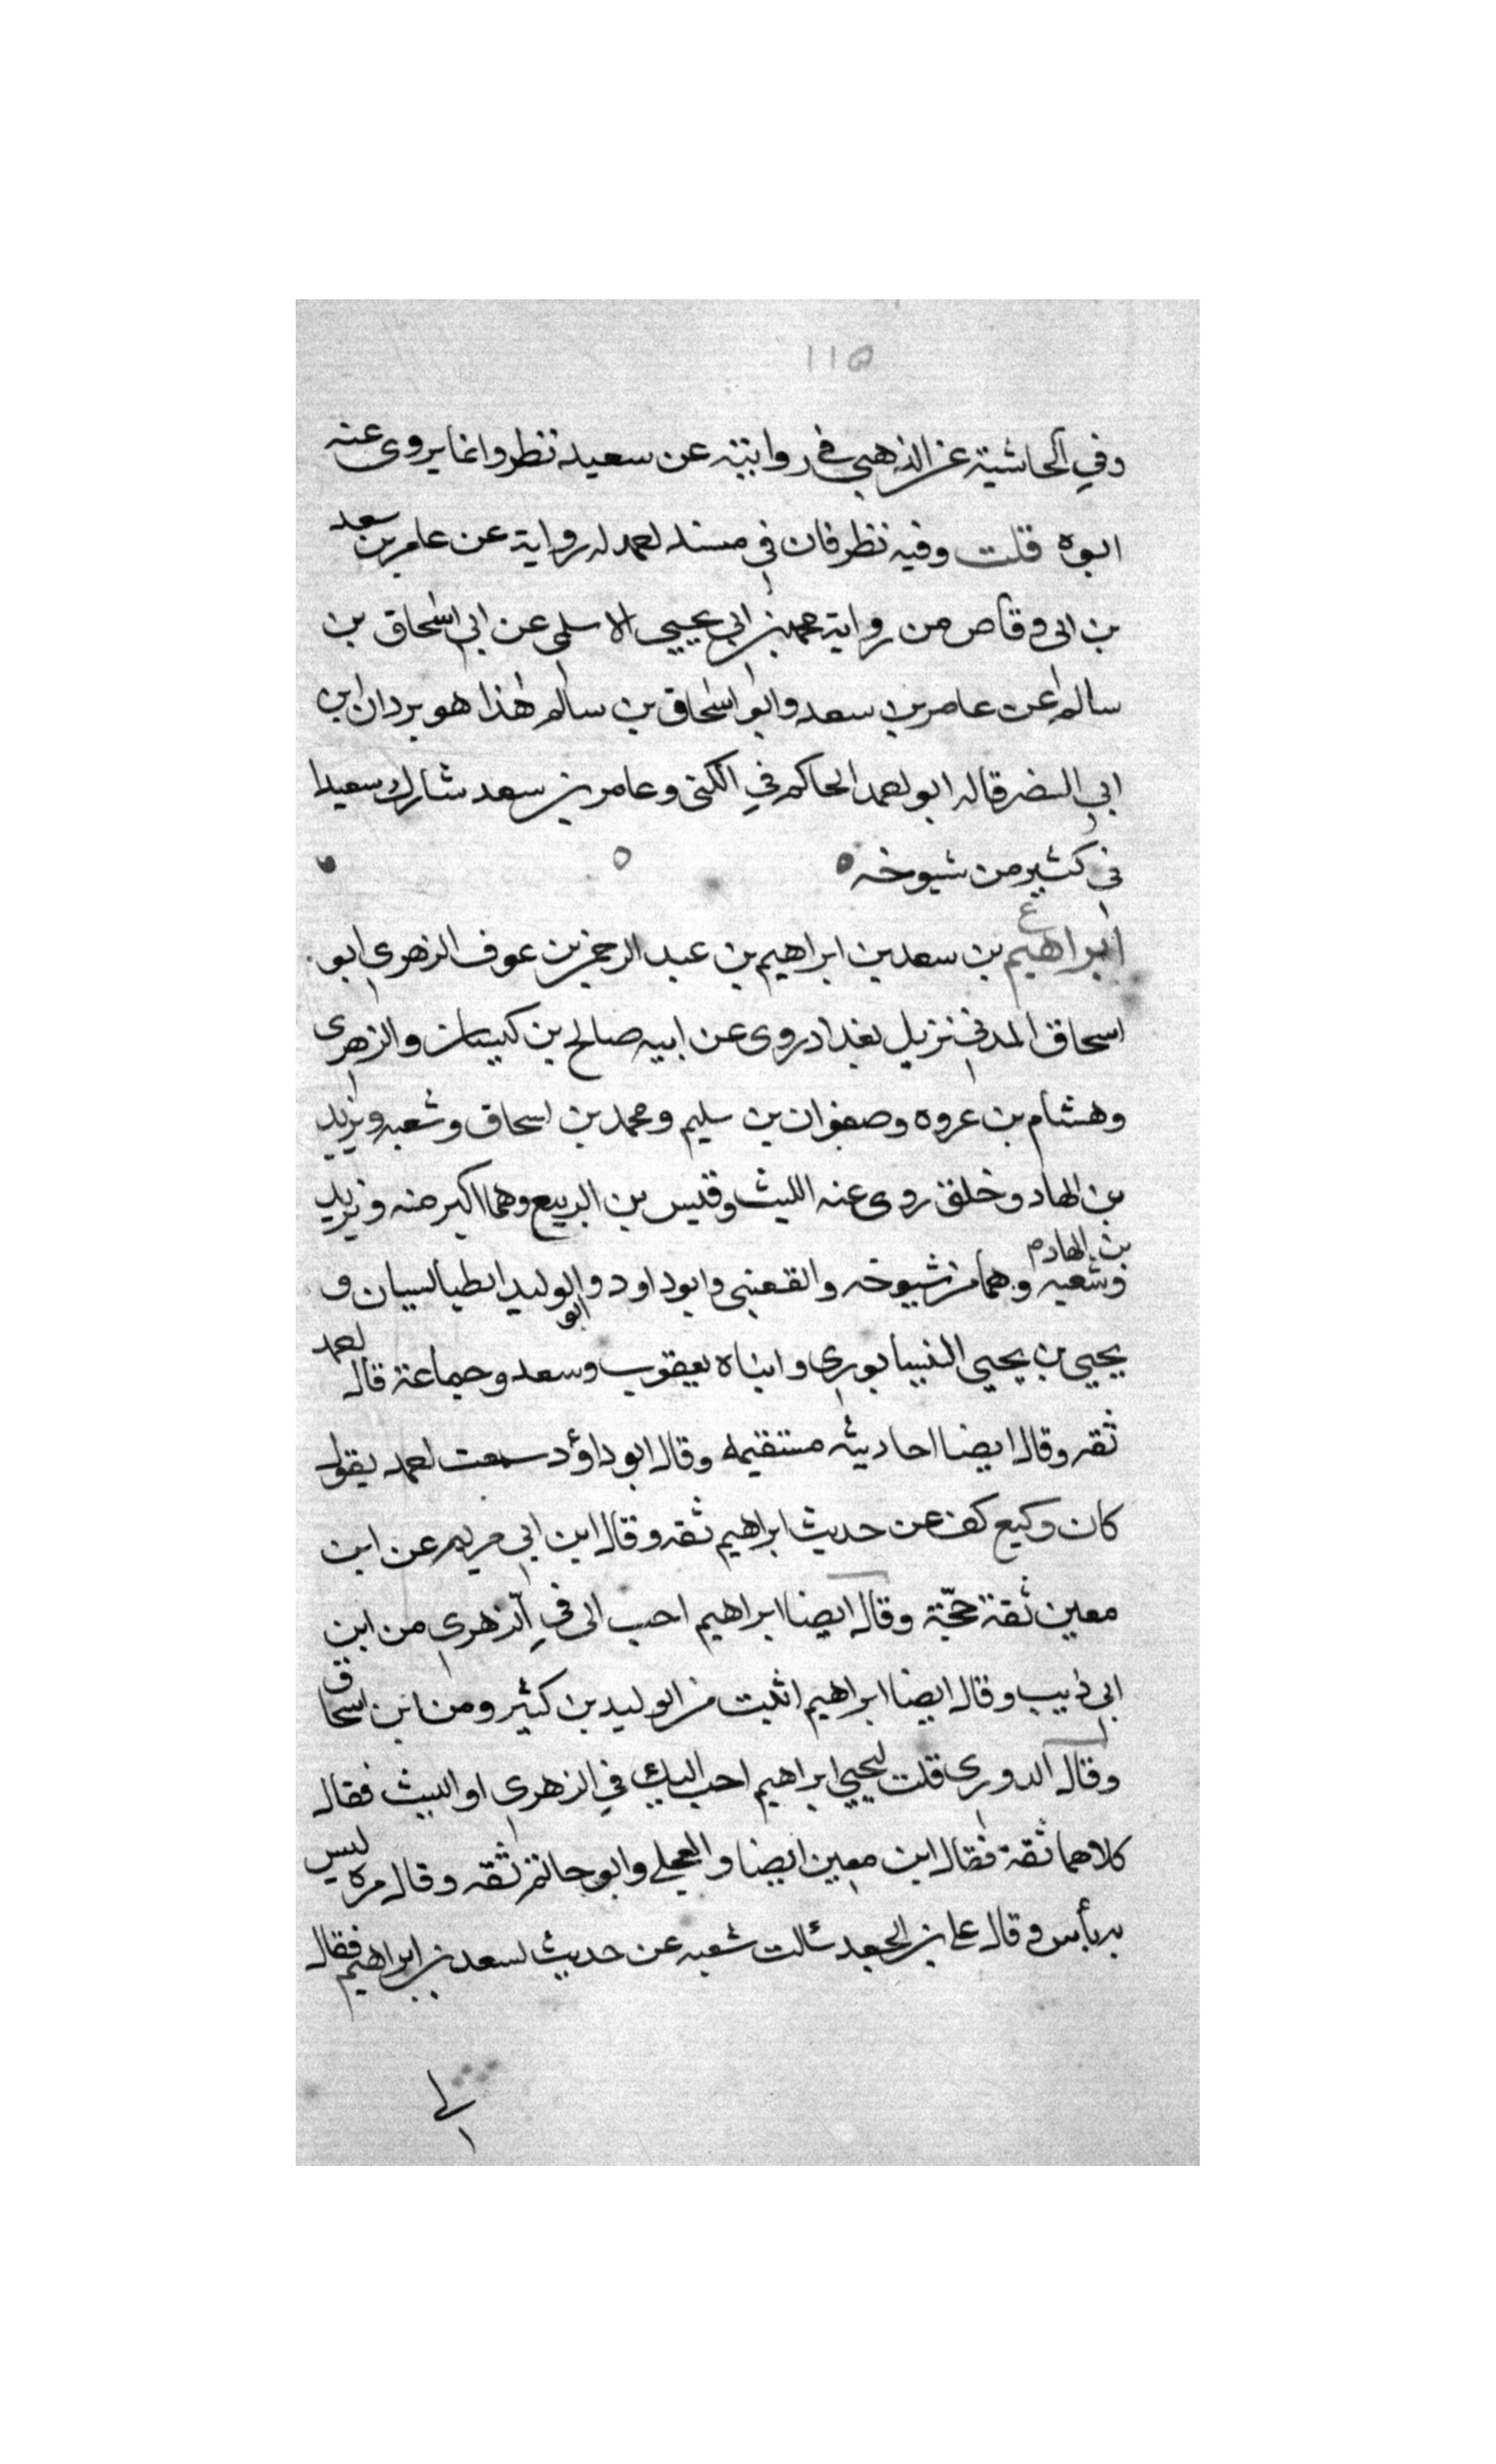 ١١٥
وفي الحاشية عن الذهبي في روايته عن سعيد نظر وانما يروى عنه
ابوه قلت وفيه نظر فان في مسند احمد له رواية عن عامر بن سعد
بن ابى وقاص من رواية محمد بن ابي يحيى الاسلمى عن ابي اسحاق بن
سالم عن عامر بن سعد وابو اسحاق بن سالم هذا هو بردان ابن
ابي النضر قاله ابو احمد الحاكم في الكنى وعامر بن سعد شارك سعيدا
في كثير من شيوخه
ع
ابراهيم بن سعد بن ابراهيم بن عبد الرحمن بن عوف الزهري ابو
اسحاق المدني نزيل بغداد روى عن ابيه صالح بن كيسان والزهرى
وهشام بن عروه وصفوان بن سليم ومحمد بن اسحاق وشعبه ويزيد
بن الهاد وخلق روى عنه الليث وقيس بن الربيع وهما اكبر منه ويزيد
بن الهاد م
وشعبه وهما من شيوخه والقعنبى وابو داود والوليد الطيالسيان و
ابو
يحيى بن يحيى النيسابورى وابناه يعقوب وسعد وجماعة قال احمد
ثقه وقال ايضا احاديثه مستقيمه وقال ابو داؤد سمعت احمد يقول
كان وكيع كف عن حديث ابراهيم ثقه وقال ابن ابي مريم عن ابن
معين ثقة حجّة وقال ايضا ابراهيم احب الى في الزهري من ابن
ابى ذيب وقال ايضا ابراهيم اثبت من الوليد بن كثير ومن ابن اسحاق
وقال الدورى قلت ليحيى ابراهيم احب اليك في الزهرى او الليث فقال
كلاهما ثقة فقال ابن معين ايضا والعجلي وابو حاتم ثقه وقال مره ليس
به بأس وقال على بن الجعد سألت شعبه عن حديث لسعد بن ابراهيم فقال